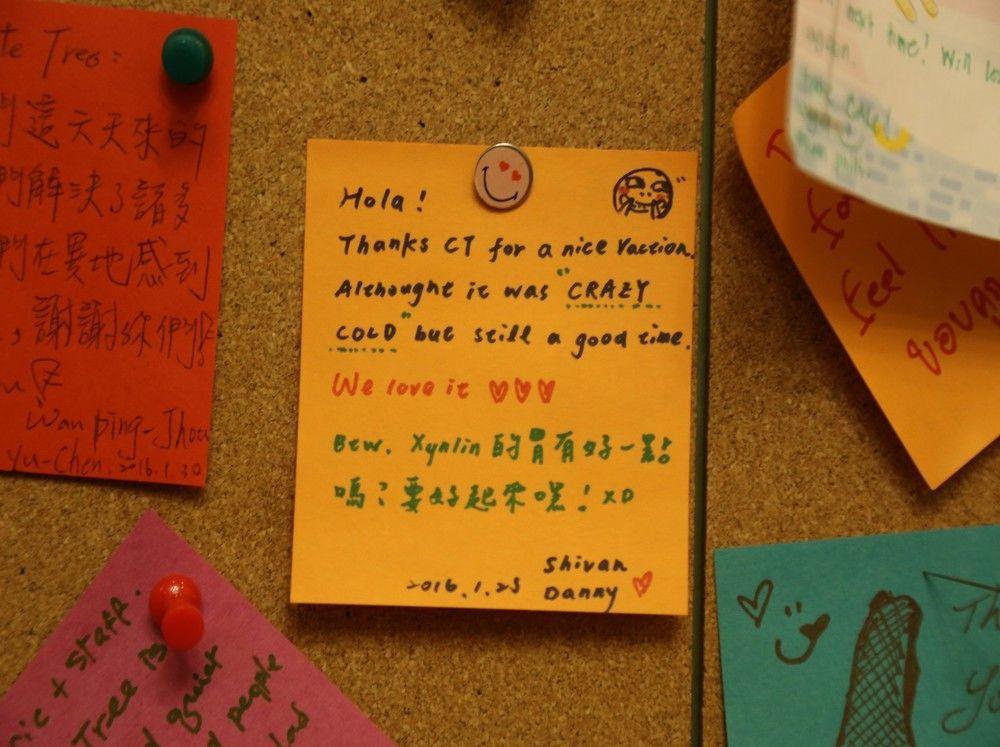 te Tree:
們這六天來的
們解決了諸多
們在異地感到
,謝謝你們
Wan Ping-Jhou
Yu-Chen. 2016.1.30
Hola!
Thanks CT for a nice Vaction.
Althought it was "CRAZY
COLD" but still a good time.
We love it
Btw. Xynlin 的胃有好一點
嗎? 要好起來嘿! XD
Shivan
2016.1.25 Danny
next time! Will
again.
feel
ic + staff.
Tree is
quiet
people
Th
Yo